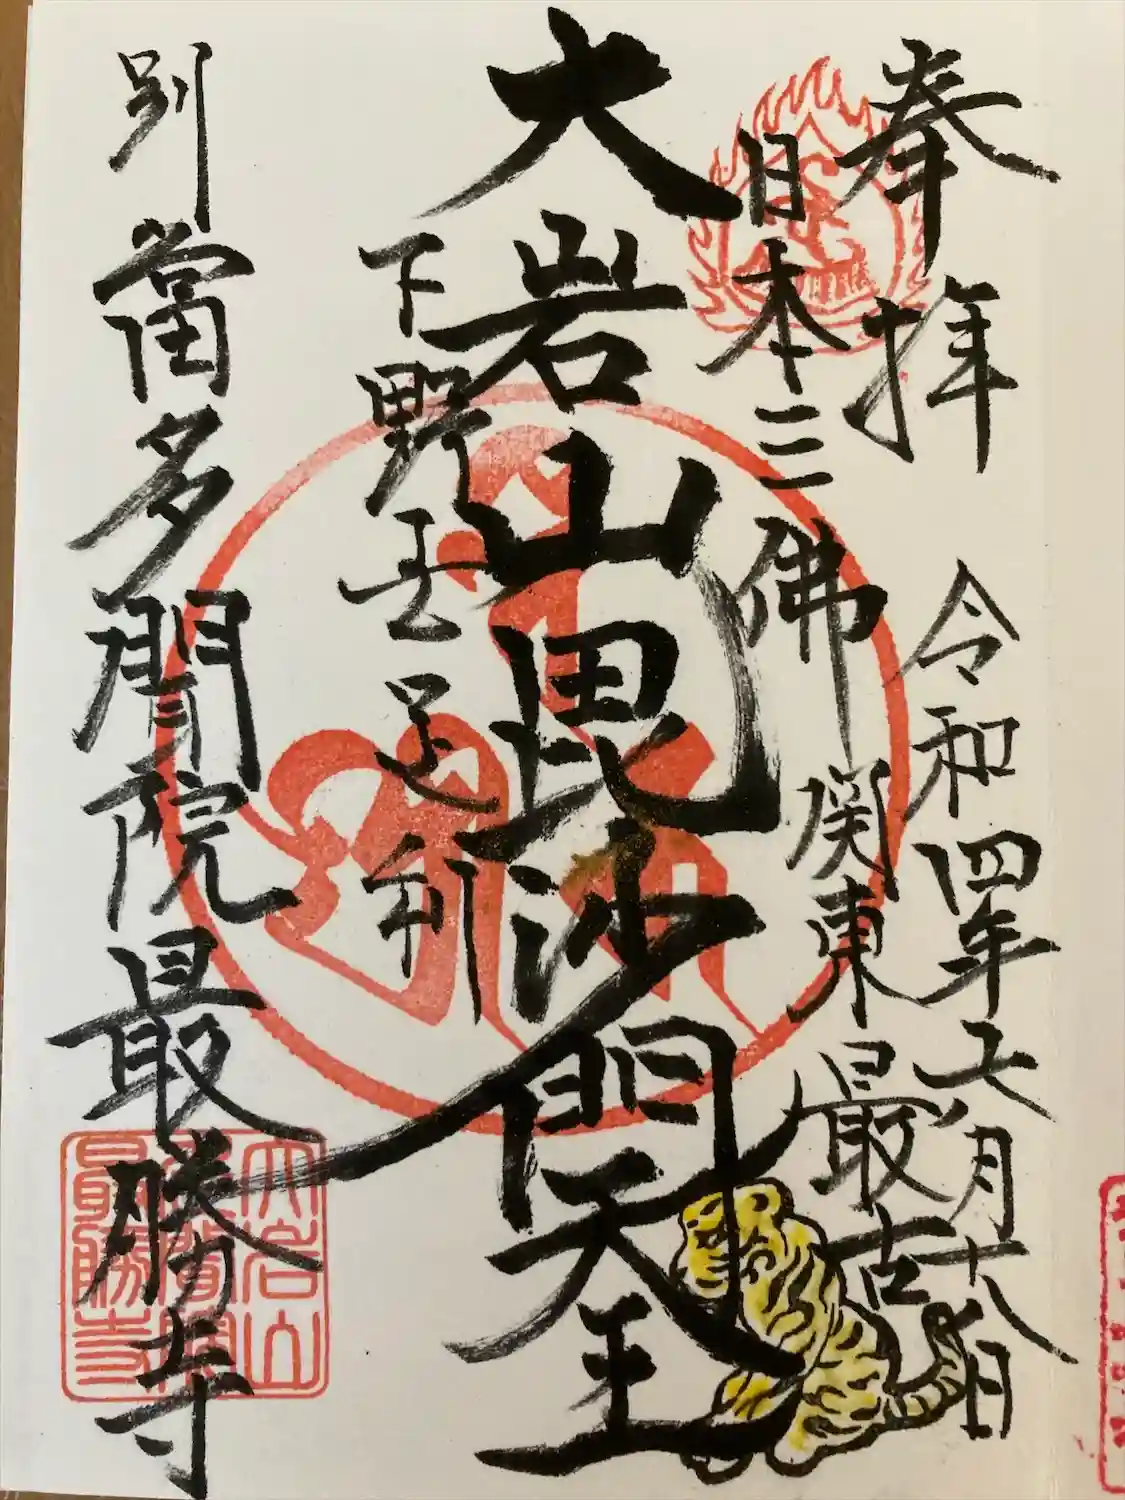 奉拝
令和四年五月十八日
日本三佛
関東最古
大岩山毘沙門天王
下野
足利
別當多聞院最勝寺
大岩山
多聞院
最勝寺